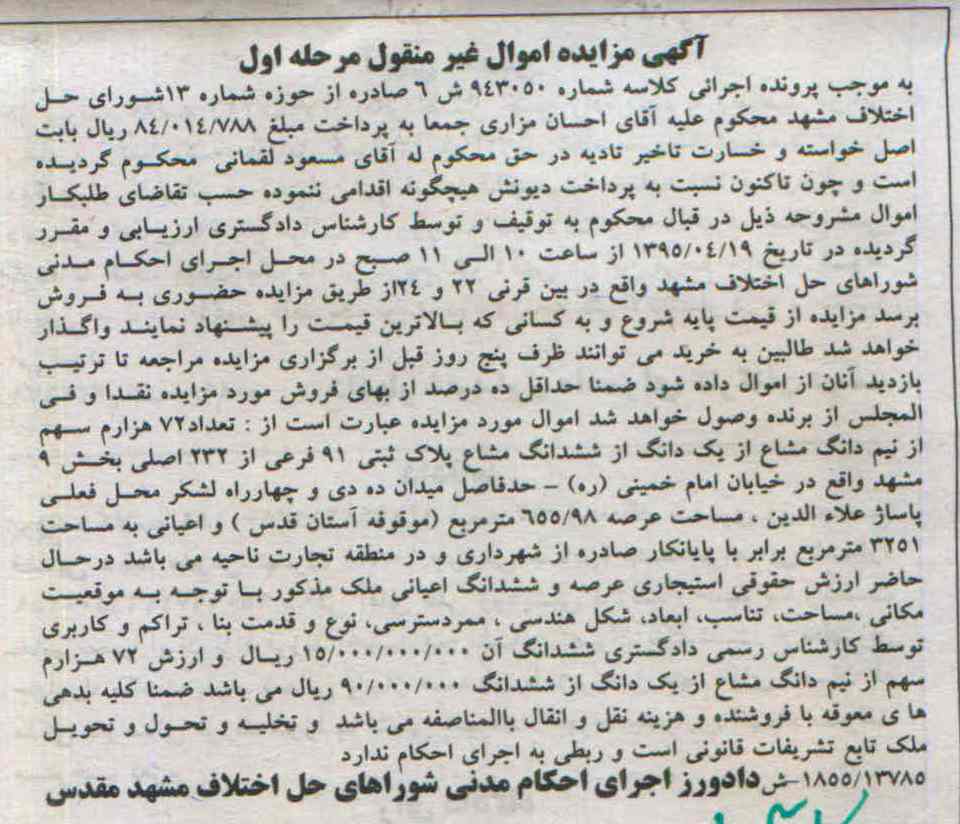 آگهی مزایده اموال غیر منقول مرحله اول
به موجب پرونده اجرائی کلاسه شماره ۹٤۳۰٥۰ ش ٦ صادره از حوزه شماره ۱۳شورای حل
اختلاف مشهد محکوم علیه آقای احسان مزاری جمعا به پرداخت مبلغ ۸٤/۰۱٤/۷۸۸ ریال بابت
اصل خواسته و خسارت تاخیر تادیه در حق محکوم له آقای مسعود لقمانی محکوم گردیده
است و چون تاکنون نسبت به پرداخت دیونش هیچگونه اقدامی ننموده حسب تقاضای طلبکار
اموال مشروحه ذیل در قبال محکوم به توقیف و توسط کارشناس دادگستری ارزیابی و مقرر
گردیده در تاریخ ۱۳۹٥/۰٤/۱۹ از ساعت ۱۰ الی ۱۱ صبح در محل اجرای احکام مدنی
شوراهای حل اختلاف مشهد واقع در بین قرنی ۲۲ و ۲٤از طریق مزایده حضوری به فروش
برسد مزایده از قیمت پایه شروع و به کسانی که بالاترین قیمت را پیشنهاد نمایند واگذار
خواهد شد طالبین به خرید می توانند ظرف پنج روز قبل از برگزاری مزایده مراجعه تا ترتیب
بازدید آنان از اموال داده شود ضمنا حداقل ده درصد از بهای فروش مورد مزایده نقدا و فی
المجلس از برنده وصول خواهد شد اموال مورد مزایده عبارت است از : تعداد۷۲ هزارم سهم
از نیم دانگ مشاع از یک دانگ از ششدانگ مشاع پلاک ثبتی ۹۱ فرعی از ۲۳۲ اصلی بخش ۹
مشهد واقع در خیابان امام خمینی (ره) – حدفاصل میدان ده دی و چهارراه لشکر محل فعلی
پاساژ علاء الدین ، مساحت عرصه ٦٥٥/۹۸ مترمربع (موقوفه آستان قدس ) و اعیانی به مساحت
۳۲٥۱ مترمربع برابر با پایانکار صادره از شهرداری و در منطقه تجارت ناحیه می باشد درحال
حاضر ارزش حقوقی استیجاری عرصه و ششدانگ اعیانی ملک مذکور با توجه به موقعیت
مکانی ،مساحت، تناسب، ابعاد، شکل هندسی ، ممردسترسی، نوع و قدمت بنا ، تراکم و کاربری
توسط کارشناس رسمی دادگستری ششدانگ آن ۱٥/۰۰۰/۰۰۰/۰۰۰ ریال و ارزش ۷۲ هزارم
سهم از نیم دانگ مشاع از یک دانگ از ششدانگ ۹۰/۰۰۰/۰۰۰ ریال می باشد ضمنا کلیه بدهی
ها ی معوقه با فروشنده و هزینه نقل و انقال باالمناصفه می باشد و تخلیه و تحول و تحویل
ملک تابع تشریفات قانونی است و ربطی به اجرای احکام ندارد
۱۸٥٥/۱۳۷۸٥-ش دادورز اجرای احکام مدنی شوراهای حل اختلاف مشهد مقدس